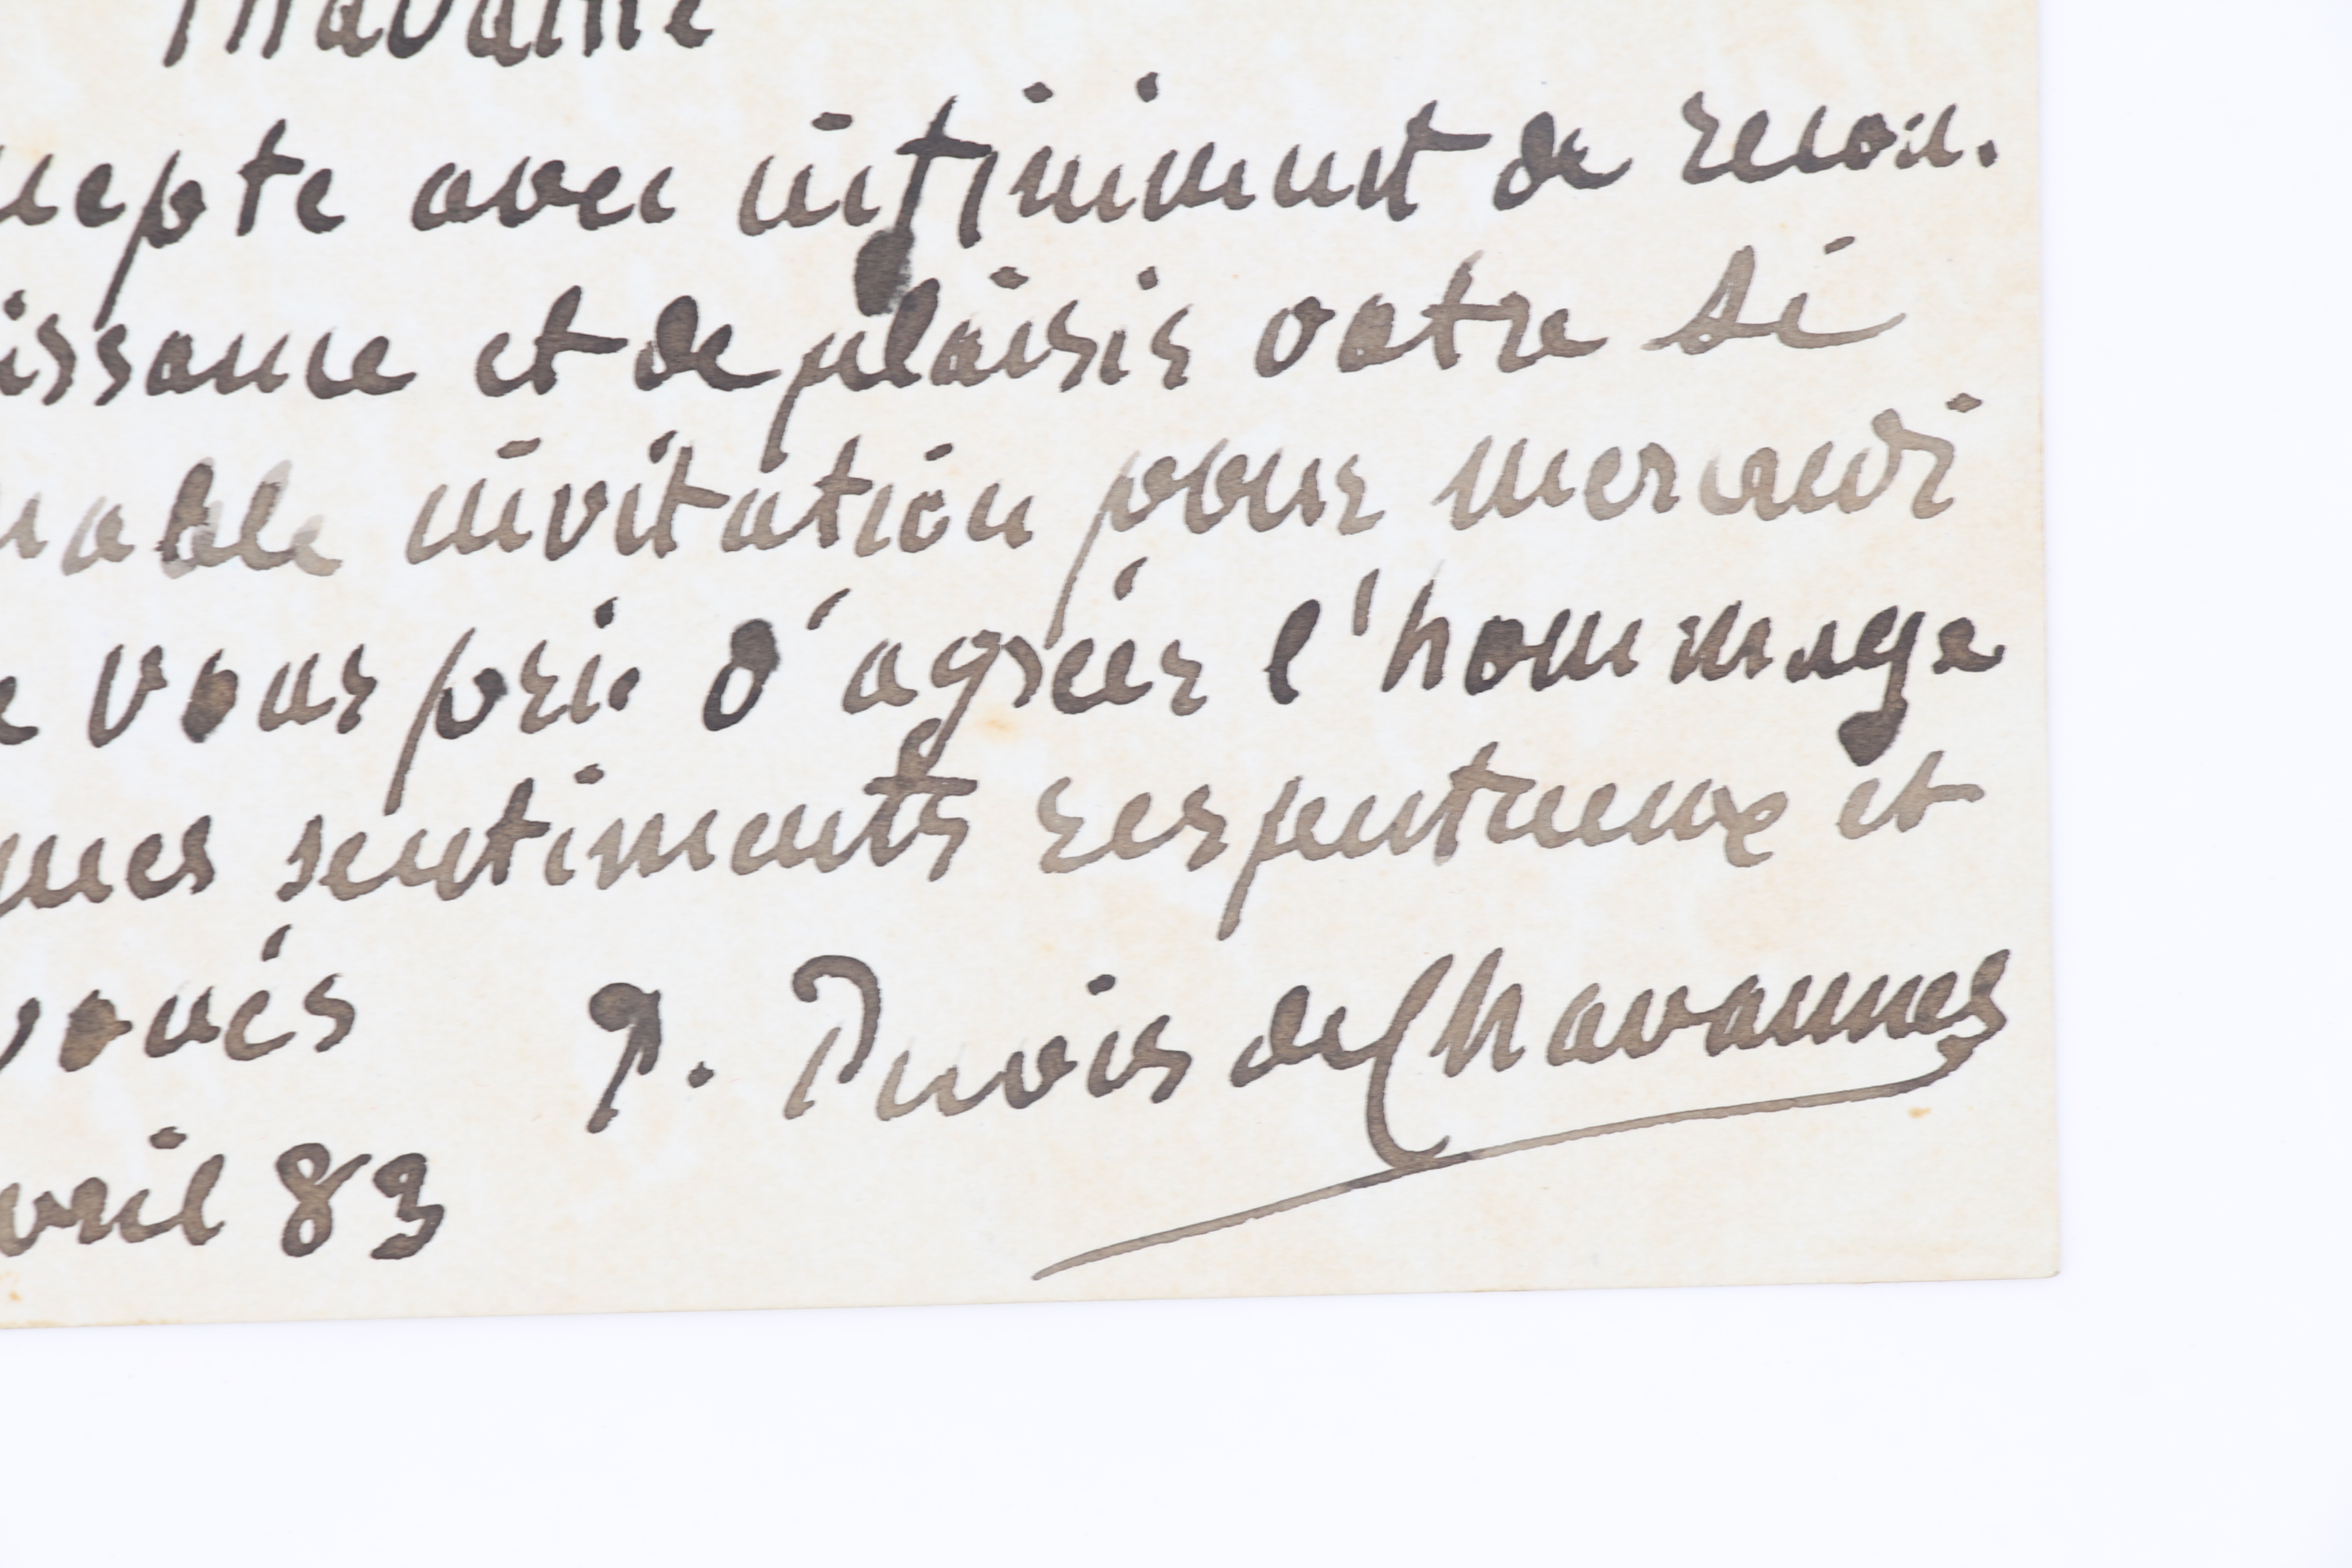 Madame
cepte avec infiniment de recon.
issance et de plaisir votre si
mable invitation pour mercredi
e vous prie d'agréer l'hommage
mes sentiments respectueux et
voués
P. Puvis de Chavannes
vril 83